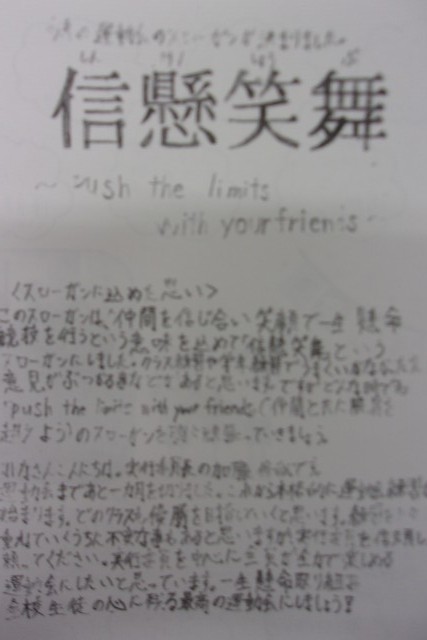 運動会のスローガンが決まりました。
信懸笑舞
~Push the limits
with your friends~
<スローガンに込めた思い>
このスローガンは、仲間を信じ合い笑顔で一生懸命
競技を行うという意味を込めて「信懸笑舞」という
スローガンにしました。クラス練習や学年練習でうまくいかなかったり
意見がぶつかるときなどもあると思います。ですがどんな時でも
"push the limits with your friends"(仲間と共に限界を
超えよう)のスローガンを
みなさんこんにちは。実行委員長の加藤です。
運動会まであと一カ月を切りました。これから本格的に運動会練習が
始まります。どのクラスも優勝を目指していくと思います。練習を
重ねていくうちに不安な事もあると思いますが実行委員を
頼ってください。実行委員を中心に全員が全力で楽しめる
運動会にしたいと思っています。一生懸命取り組み
全校生徒の心に残る最高の運動会にしましょう!